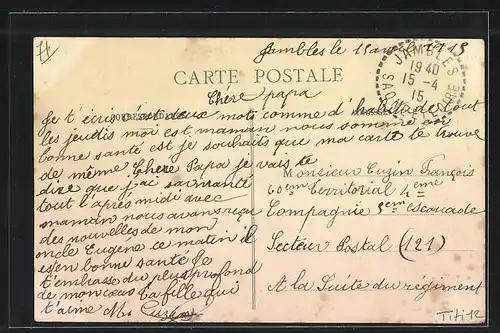 71
Jambles le 15 avril 1915
JAMBLES
1940
15-4
15
CARTE POSTALE
Chére papa
Je t'écris c'est deux mots comme d'habitude tout
les jeudis moi est maman nous somme en
bonne santé est je souhaits que ma carte te trouve
de même Chere Papa je vais te
dire que j'ai sarmanté
tout l'après midi avec
maman nous avons reçu
des nouvelles de mon
oncle Eugène ce matin il
es en bonne santé Je
t'embrasse du plus profond
de mon cœur ta fille qui
t'aime M. Cuzin
Monsieur Cuzin François
60em Territorial 4eme
Compagnie 5em escouade
Secteur Postal (121)
A la Suite du régiment